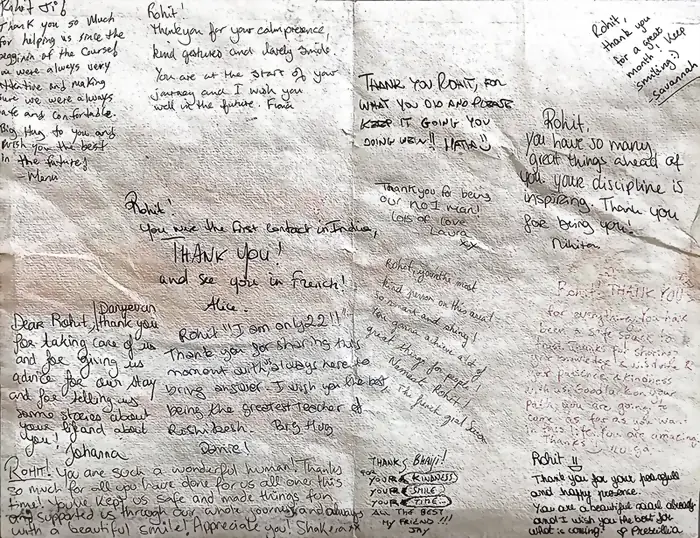 Rohit Ji
Thank you so much
for helping us since the
beggining of the Course!
u were always very
and making
sure we were always
safe and comfortable.
Big Hug to you and
wish you the best
in the future!
- Menu
Rohit!
Thankyou for your calm presence,
kind gestures and lovely smile.
You are at the start of your
journey and I wish you
well in the future. Fiona
Rohit,
thank you
for a great
month! Keep
smiling :)
- Savannah
THANK YOU ROHIT, FOR
WHAT YOU DID AND PLEASE
KEEP IT GOING YOU
DOING WEW!!
Rohit,
You have so many
great things ahead of
you your discipline is
inspiring. Thank you
for being you!
Thankyou for being
our no.1 man!
Lots of love
Laura
xx
Rohit!
You were the first contact in India,
THANK YOU!
and see you in French!
Alice.
Rohit, you're the most
kind person on this
so smart and shiny!
You gonna achieve a lot of
great things for people,
Rohit!
The french girl
Rohit! THANK YOU
for everything. You have
been a safe space to
hold. Thanks for sharing
knowledge & wisdom &
presence & kindness
with us. Good luck on your
path, you are going to
come as far as you want
in this life. You are amazing
Thanks
Dear Rohit, Danyevan
thank you
for taking care of us
and for giving us
advice for our stay
and for telling us
some stories about
your life and about
you! Johanna
Rohit "I am only 22!!"
Thank you for sharing this
moment with "always here to
bring answer. I wish you the best
being the greatest teacher of
Roshikesh. Big Hug
Danie!
ROHIT! You are such a wonderful human! Thanks
so much for all you have done for us all one this
time! You've kept us safe and made things fun
and supported us through our whole journey and always
with a beautiful smile! Appreciate you!
THANKS BHAIJI!
FOR
YOUR KINDNESS
YOUR SMILE
YOUR TIME...
ALL THE BEST
MY FRIEND!!!
JAY
Rohit
Thank you for your peacefull
and happy presence.
You are a beautiful soul already
and I wish you the best for
what is coming. Prescillia